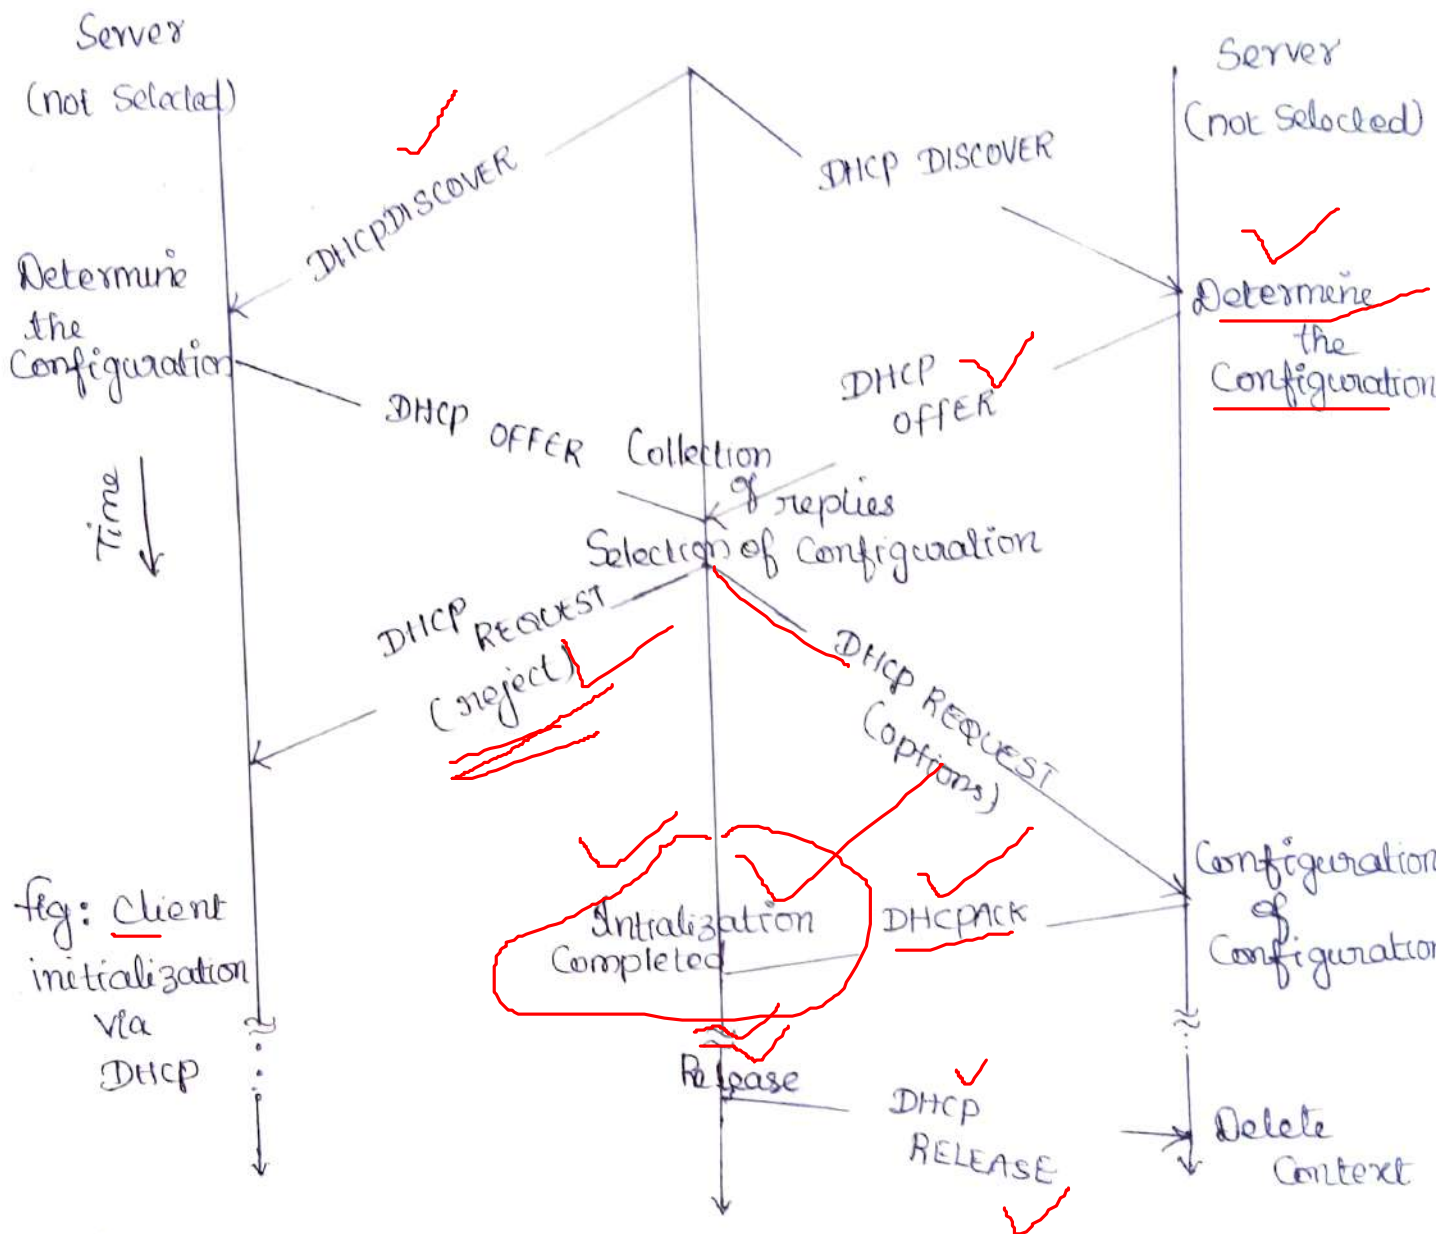 Server
(not Selected)
Server
(not Selected)
DHCPDISCOVER
DHCP DISCOVER
Determine
the
Configuration
Determine
the
Configuration
DHCP OFFER
DHCP
OFFER
Collection
of replies
Selection of Configuration
Time
DHCP REQUEST
(reject)
DHCP REQUEST
(options)
fig: Client
initialization
via
DHCP
Intialization
Completed
DHCPACK
Configuration
of
Configuration
Release
DHCP
RELEASE
Delete
Context